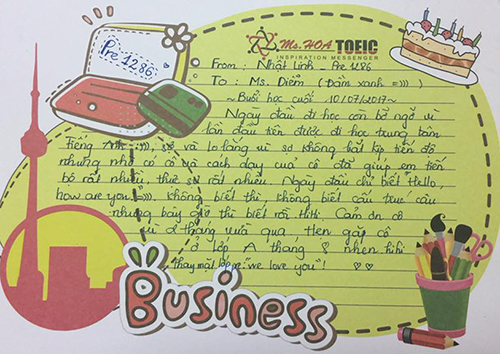 Ms. HOA TOEIC
INSPIRATION MESSENGER
Pre 1286
From : Nhật Linh Pre 1286
To : Ms. Diễm (Đầm xanh =))) )
~ Buổi học cuối 10/07/2017 ~
Ngày đầu đi học còn bỡ ngỡ vì
lần đầu tiên được đi học trung tâm
Tiếng Anh :-)))), sợ và lo lắng vì sợ không bắt kịp tiến độ
nhưng nhờ có cô và cách dạy của cô đã giúp em tiến
bộ rất nhiều, thực sự rất nhiều. Ngày đầu chỉ biết "Hello,
how are you" =))))), không biết thì, không biết cấu trúc câu
nhưng bây giờ thì biết rồi hihi. Cảm ơn cô
vì 2 tháng vừa qua. Hẹn gặp cô
ở lớp A tháng 8 nhen hihi
Thay mặt lớp "we love you"!
Business